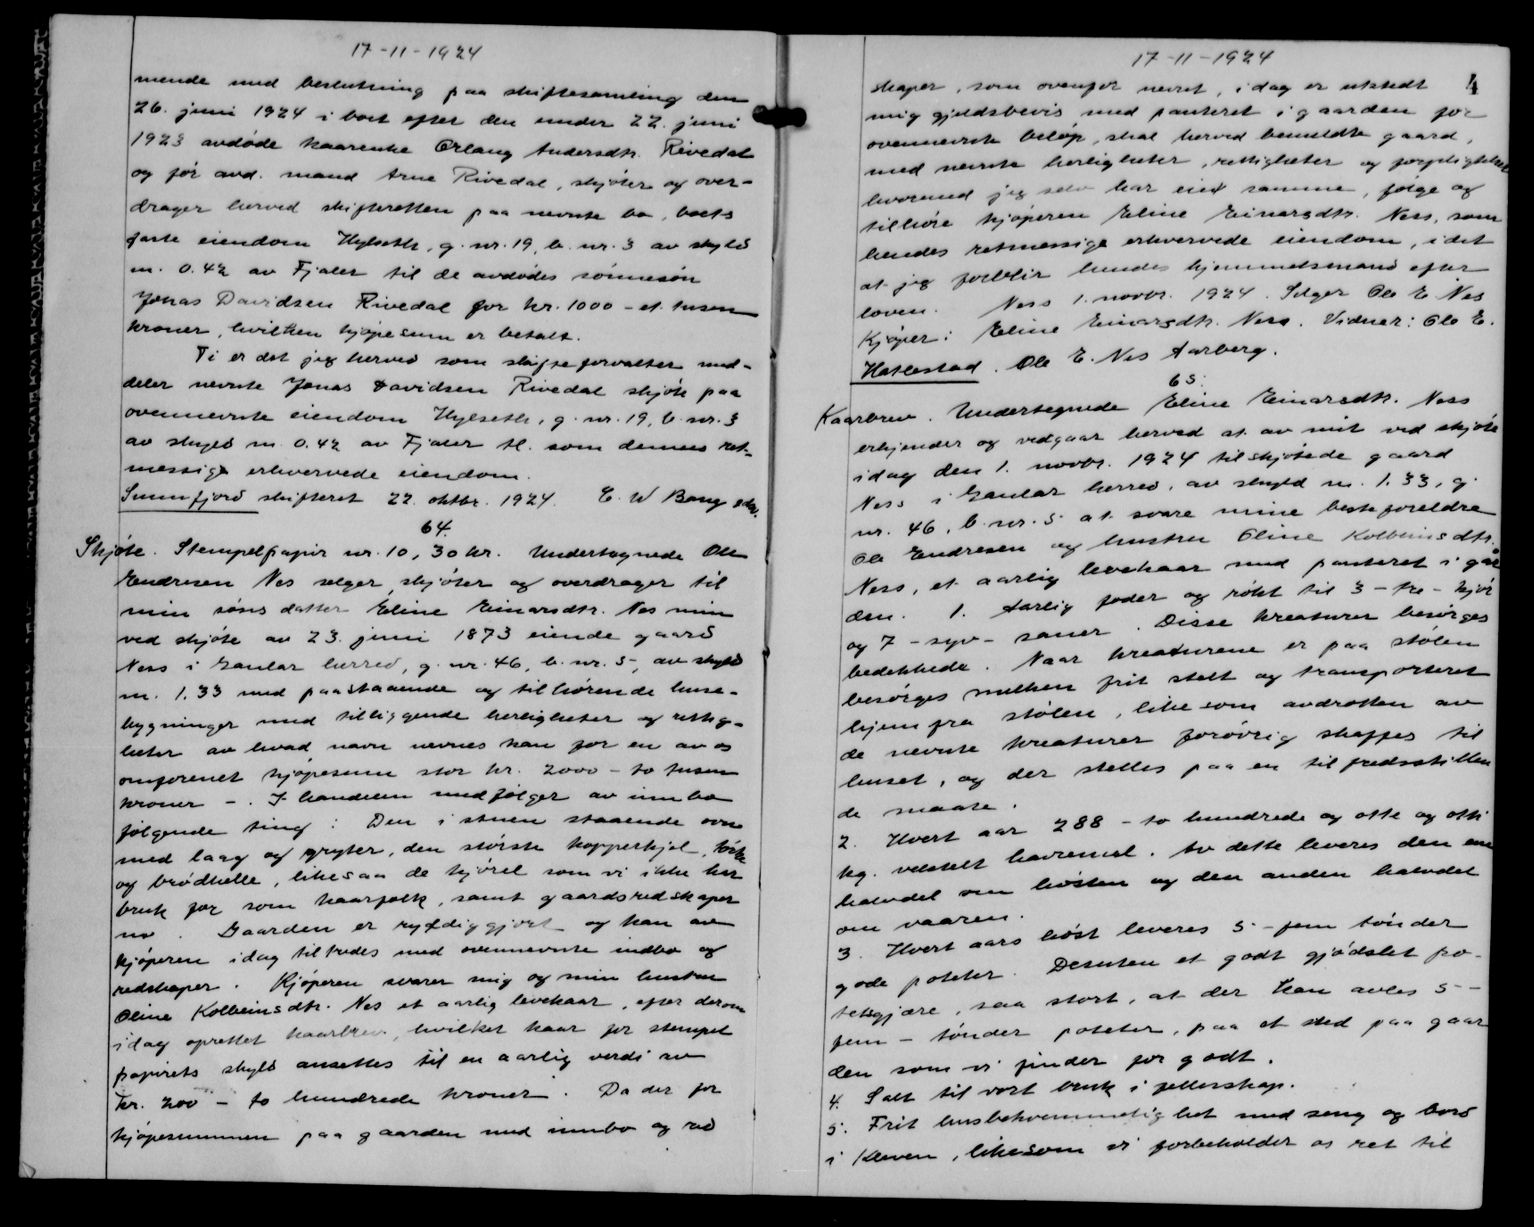 17-11-1924
mende med beslutning paa skiftesamling den
26. juni 1924 i boet efter den under 22. juni
1923 avdøde kaarenke Erlaug Andersdtr. Rivedal
og før avd. mand Arne Rivedal, skjøter og over-
drager herved skifteretten paa nevnte bo, boets
faste eiendom Hylseth, g. nr. 19, b. nr. 3 av skyld
m. 0.42 av Fjaler til de avdødes sønnesøn
Jonas Davidsen Rivedal for kr. 1000 - et tusen
kroner, hvilken kjøpesum er betalt.
Ti er det jeg herved som skifteforvalter med-
deler nevnte Jonas Davidsen Rivedal skjøte paa
ovennevnte eiendom Hylseth, g. nr. 19, b. nr. 3
av skyld m. 0.42 av Fjaler tl. som dennes ret-
messige erhvervede eiendom.
Sunnfjord skifteret 22. oktbr. 1924. E. W Bang
64.
Skjøte. Stempelpapir nr. 10, 30 kr. Undertegnede Ole
Endresen Nes selger, skjøter og overdrager til
min søns datter Eline Einarsdtr. Nes min
ved skjøte av 23. juni 1873 eiende gaard
Ness i Gaular herred, g. nr. 46, b. nr. 5, av skyld
m. 1.33 med paastaaende og tilhørende huse-
bygninger med tilliggende herligheter og rettig-
heter av hvad navn nevnes kan for en av os
omforenet kjøpesum stor kr. 2000 - to tusen
kroner -. I handelen medfølger av innbo
følgende ting: Den i stuen staaende ovn
med laag og gryter, den største kopperkjel,
og brødhelle, likesaa de kjørel som vi ikke har
bruk for som kaarfolk, samt gaardsredskaper
nø. Gaarden er ryddiggjort og kan av
kjøperen idag tiltredes med ovennevnte indbo og
redskaper. Kjøperen svarer mig og min hustru
Oline Kolbeinsdtr. Nes et aarlig levekaar, efter derom
idag oprettet kaarbrev, hvilket kaar for stempel
papirets skyld ansettes til en aarlig verdi av
kr. 200 - to hundrede kroner. Da der for
kjøpesummen paa gaarden med innbo og red
17-11-1924
4
skaper, som ovenfor nevnt, idag er utstedt
mig gjeldsbevis med panteret i gaarden for
ovennevnte beløp, skal herved bemeldte gaard,
med nevnte herligheter, rettigheter og forpligtelser
hvormed jeg selv har eiet samme, følge og
tilhøre kjøperen Eline Einarsdtr. Ness, som
hendes retmessige erhvervede eiendom, idet
at jeg forblir hendes hjemmelsmand efter
loven. Ness 1. novbr. 1924. Selger Ole E Nes
Kjøper: Eline Einarsdtr. Ness. Vidner: Ole E.
Hatlestad. Ole E. Nes Aarberg.
65.
Kaarbrev. Undertegnede Eline Einarsdtr. Ness
erkjender og vedgaar herved at av mit ved skjøte
idag den 1. novbr. 1924 tilskjøtede gaard
Ness i Gaular herred, av skyld m. 1.33, g.
nr. 46, b. nr. 5 at svare mine besteforeldre
Ole Endresen og hustru Oline Kolbeinsdtr.
Ness, et aarlig levekaar med panteret i går
den. 1. Aarlig foder og røkt til 3 - tre - kjør
og 7 - syv - sauer. Disse kreaturer besørges
bedekkede. Naar kreaturene er paa stølen
besørges melken frit stelt og transporteret
hjem fra stølen, likesom avdrotten av
de nevnte kreaturer forøvrig skaffes til
huset, og der stelles paa en tilfredsstillen
de maate.
2. Hvert aar 288 - to hundrede og otte og otti
kg. velstelt havremel. Av dette leveres den ene
halvdel om høsten og den anden halvdel
om vaaren.
3. Hvert aars høst leveres 5 - fem tønder
gode poteter. Desuten et godt gjødslet po-
tetsgjære, saa stort, at der kan avles 5 -
fem - tønder poteter, paa et sted paa gaar
den som vi finder for godt.
4. Salt til vort bruk i fellesskap.
5. Frit husbekvemmelighet med seng og bord
i Kleven, likesom vi forbeholder os ret til